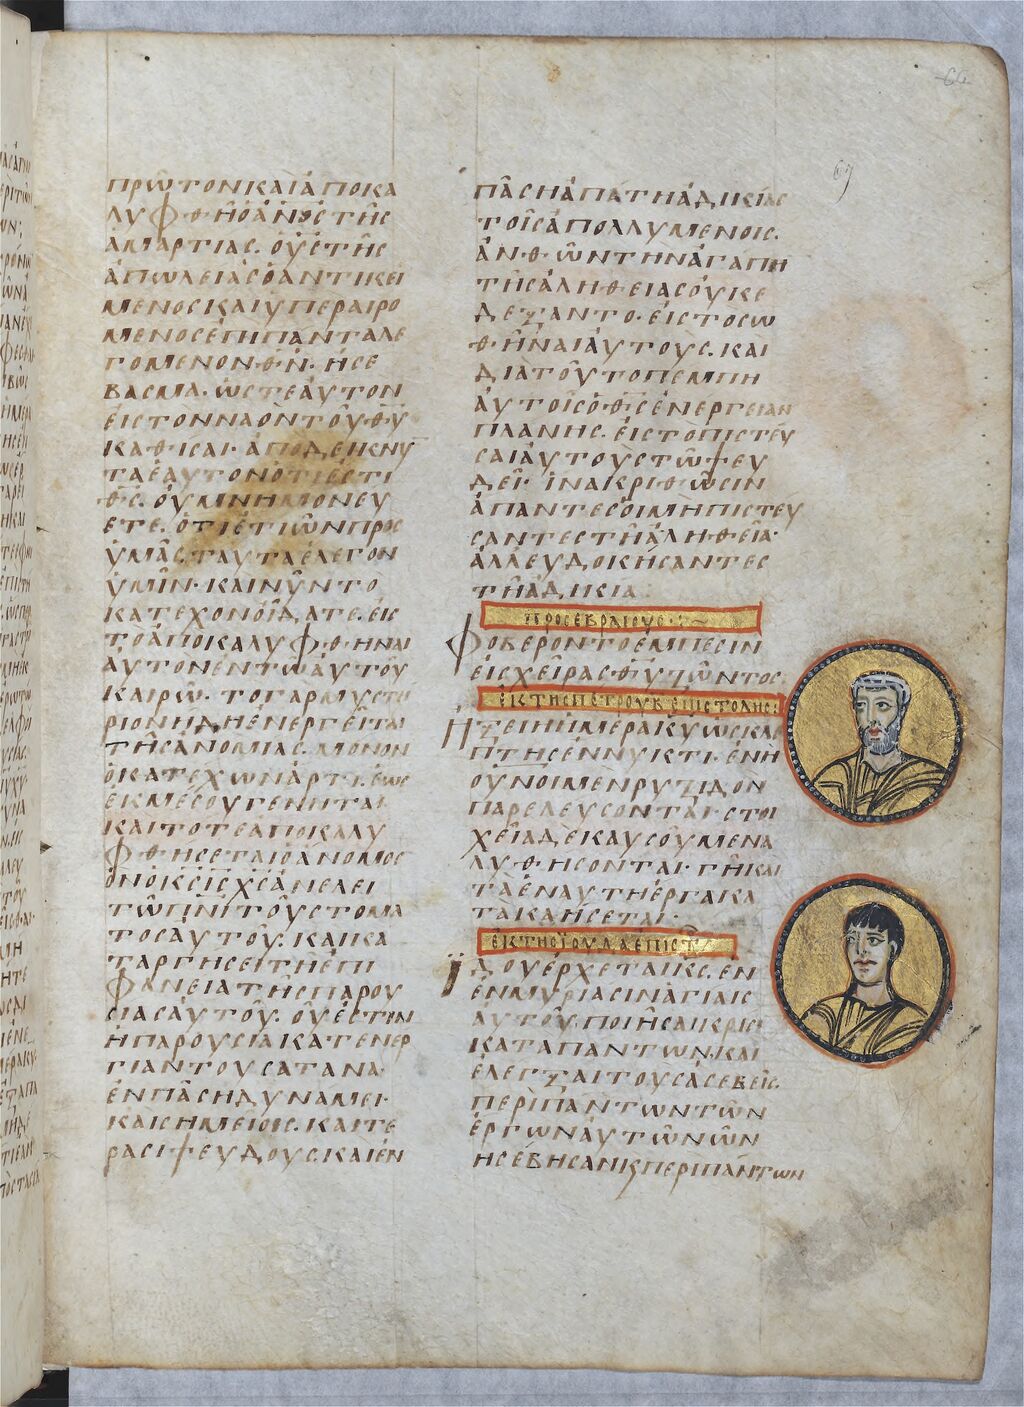 ΠΡΩ͂ΤΟΝ ΚΑΙ ἈΠΟΚΑ
ΛΥΦΘΗ͂ Ὁ ἈΝΟΣ ΤΗ͂Σ
ἉΜΑΡΤΙΑΣ. Ὁ ΥΣ ΤΗ͂Σ
ἈΠΩΛΕΙΑΣ Ὁ ΑΝΤΙΚΕΙ
ΜΕΝΟΣ ΚΑΙ ὙΠΕΡΑΙΡΟ
ΜΕΝΟΣ ἘΠΙ ΠΑΝΤΑ ΛΕ
ΓΟΜΕΝΟΝ ΘΝ. Ἠ ΣΕ
ΒΑΣΜΑ. ὩΣΤΕ ἈΥΤΟΝ
ἘΙΣ ΤΟΝ ΝΑΟΝ ΤΟΥ͂ ΘΥ
ΚΑΘΙΣΑΙ. ἈΠΟΔΕΙΚΝΥ
ΤΑ ἙΑΥΤΟΝ ὉΤΙ ἘΣΤΙ
ΘΣ. ΟΥ ΜΝΗΜΟΝΕΥ
ΕΤΕ. ὉΤΙ ἘΤΙ ὨΝ ΠΡΟΣ
ὙΜΑ͂Σ, ΤΑΥΤΑ ἘΛΕΓΟΝ
ὙΜΙΝ. ΚΑΙ ΝΥΝ ΤΟ
ΚΑΤΕΧΟΝ ὈΙΔΑΤΕ. ἘΙΣ
ΤΟ ἈΠΟΚΑΛΥΦΘΗΝΑΙ
ΑΥΤΟΝ ἘΝ ΤΩ͂ ἙΑΥΤΟΥ
ΚΑΙΡΩ͂. ΤΟ ΓΑΡ ΜΥΣΤΗ
ΡΙΟΝ ἨΔΗ ἘΝΕΡΓΕΙΤΑΙ
ΤΗ͂Σ ἈΝΟΜΙΑΣ. ΜΟΝΟΝ
Ὁ ΚΑΤΕΧΩΝ ἈΡΤΙ. ἙΩΣ
ἘΚ ΜΕΣΟΥ ΓΕΝΗΤΑΙ.
ΚΑΙ ΤΟΤΕ ἈΠΟΚΑΛΥ
ΦΘΗΣΕΤΑΙ Ὁ ἈΝΟΜΟΣ
ὉΝ Ὁ ΚΣ ΙΣ ΧΣ ἈΝΕΛΕΙ
ΤΩ͂ ΠΝΙ ΤΟΥ͂ ΣΤΟΜΑ
ΤΟΣ ΑΥΤΟΥ. ΚΑΙ ΚΑ
ΤΑΡΓΗΣΕΙ ΤΗ ἘΠΙ
ΦΑΝΕΙΑ ΤΗΣ ΠΑΡΟΥ
ΣΙΑΣ ΑΥΤΟΥ. ΟΥ͂ ἘΣΤΙΝ
Ἡ ΠΑΡΟΥΣΙΑ ΚΑΤ ἘΝΕΡ
ΓΙΑΝ ΤΟΥ ΣΑΤΑΝΑ
ἘΝ ΠΑΣΗ ΔΥΝΑΜΕΙ.
ΚΑΙ ΣΗΜΕΙΟΙΣ. ΚΑΙ ΤΕ
ΡΑΣΙ ΨΕΥΔΟΥΣ ΚΑΙ ἘΝ
ΠΑΣΗ ἈΠΑΤΗ ἈΔΙΚΙΑΣ
ΤΟΙΣ ἈΠΟΛΛΥΜΕΝΟΙΣ.
ἈΝΘ ὩΝ ΤΗΝ ἈΓΑΠΗ
ΤΗΣ ἈΛΗΘΕΙΑΣ ΟΥΚ Ε
ΔΕΞΑΝΤΟ. ἘΙΣ ΤΟ ΣΩ
ΘΗΝΑΙ ἈΥΤΟΥΣ. ΚΑΙ
ΔΙΑ ΤΟΥΤΟ ΠΕΜΠΗ
ἈΥΤΟΙΣ Ὁ ΘΣ ἘΝΕΡΓΕΙΑΝ
ΠΛΑΝΗΣ. ἘΙΣ ΤΟ ΠΙΣΤΕΥ
ΣΑΙ ἈΥΤΟΥΣ ΤΩ͂ ΨΕΥ
ΔΕΙ. ἹΝΑ ΚΡΙΘΩ͂ΣΙΝ
ἉΠΑΝΤΕΣ ΟΙ ΜΗ ΠΙΣΤΕΥ
ΣΑΝΤΕΣ ΤΗ ἈΛΗΘΕΙΑ.
ἈΛΛ ΕΥΔΟΚΗΣΑΝΤΕΣ
ΤΗ ἈΔΙΚΙΑ
ΠΡΟΣ ΕΒΡΑΙΟΥΣ
ΦΟΒΕΡΟΝ ΤΟ ΕΜΠΕΣΙΝ
ΕΙΣ ΧΕΙΡΑΣ ΘΥ ΖΩΝΤΟΣ
ΕΚ ΤΗΣ ΠΕΤΡΟΥ Β ΕΠΙΣΤΟΛΗΣ
ΗΞΕΙ Η ΗΜΕΡΑ ΚΥ ΩΣ ΚΛΕ
ΠΤΗΣ ΕΝ ΝΥΚΤΙ. ΕΝ Η
ΟΥΝΟΙ ΜΕΝ ΡΥΖΙΔΟΝ
ΠΑΡΕΛΕΥΣΟΝΤΑΙ. ΣΤΟΙ
ΧΕΙΑ ΔΕ ΚΑΥΣΟΥΜΕΝΑ
ΛΥΘΗΣΟΝΤΑΙ. ΓΗ ΚΑΙ
ΤΑ ΕΝ ΑΥΤΗ ΕΡΓΑ ΚΑ
ΤΑΚΑΗΣΕΤΑΙ.
ΕΚ ΤΗΣ ΙΟΥΔΑ ΕΠΙΣΤ
ΪΔΟΥ ΕΡΧΕΤΑΙ ΚΣ. ΕΝ
ΕΝ ΜΥΡΙΑΣΙΝ ΑΓΙΑΙΣ
ΑΥΤΟΥ. ΠΟΙΗΣΑΙ ΚΡΙΣΙ
ΚΑΤΑ ΠΑΝΤΩΝ. ΚΑΙ
ΕΛΕΓΞΑΙ ΤΟΥΣ ΑΣΕΒΕΙΣ.
ΠΕΡΙ ΠΑΝΤΩΝ ΤΩΝ
ΕΡΓΩΝ ΑΥΤΩΝ ΩΝ
ΗΣΕΒΗΣΑΝ Κ ΠΕΡΙ ΠΑΝΤΩΝ